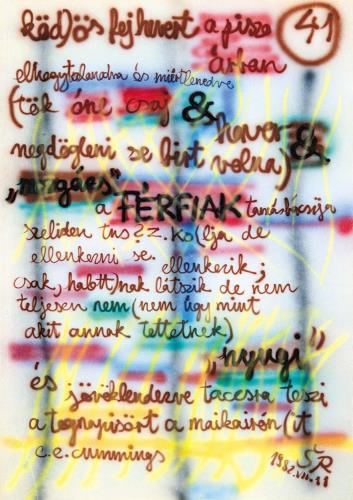 köd)ös fej hevert a pisze
41
árban
elhagytalanodva és miértlenedve
(tök óne csaj &
hever &
megdögleni se bírt volna)
„mogács"
a FÉRFIAK tamásbácsija
szeliden tns?z.ko(lja de
ellenkezni se. ellenkezik;
csak, habtt)nak látszik de nem
teljesen nem (nem úgy mint
akit annak tettetnek)
„nyugi"
és jövöklenderve tacesra teszi
a tegnapisört a maikairén(it
e.e.cummings
SR
1982.VII.11